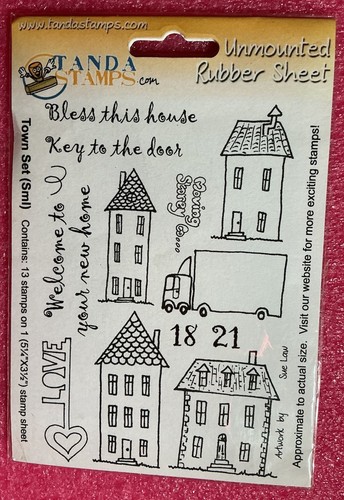 www.tandastamps.com
TANDA
STAMPS.com
Unmounted
Rubber Sheet
Bless this house
Key to the door
Welcome to
your new home
Moving
Storey to....
LOVE
18 21
Town Set (Sml) Contains: 13 stamps on 1 (5¼"X3¼") stamp sheet
Artwork by Sue Law
Approximate to actual size. Visit our website for more exciting stamps!